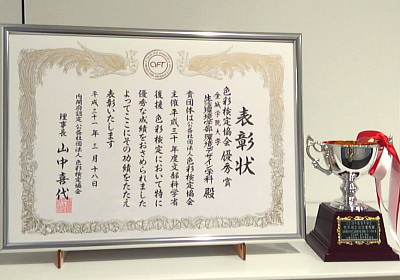 AFT
表彰状
色彩検定協会 優秀賞
金城学院大学
生活環境学部 環境デザイン学科 殿
貴団体は公益社団法人色彩検定協会
主催平成三十年度文部科学省
後援 色彩検定において特に
優秀な成績をおさめられました
よってここにその功績をたたえ
表彰いたします
平成三十一年 三月十八日
内閣府認定 公益社団法人 色彩検定協会
理事長 山中喜代